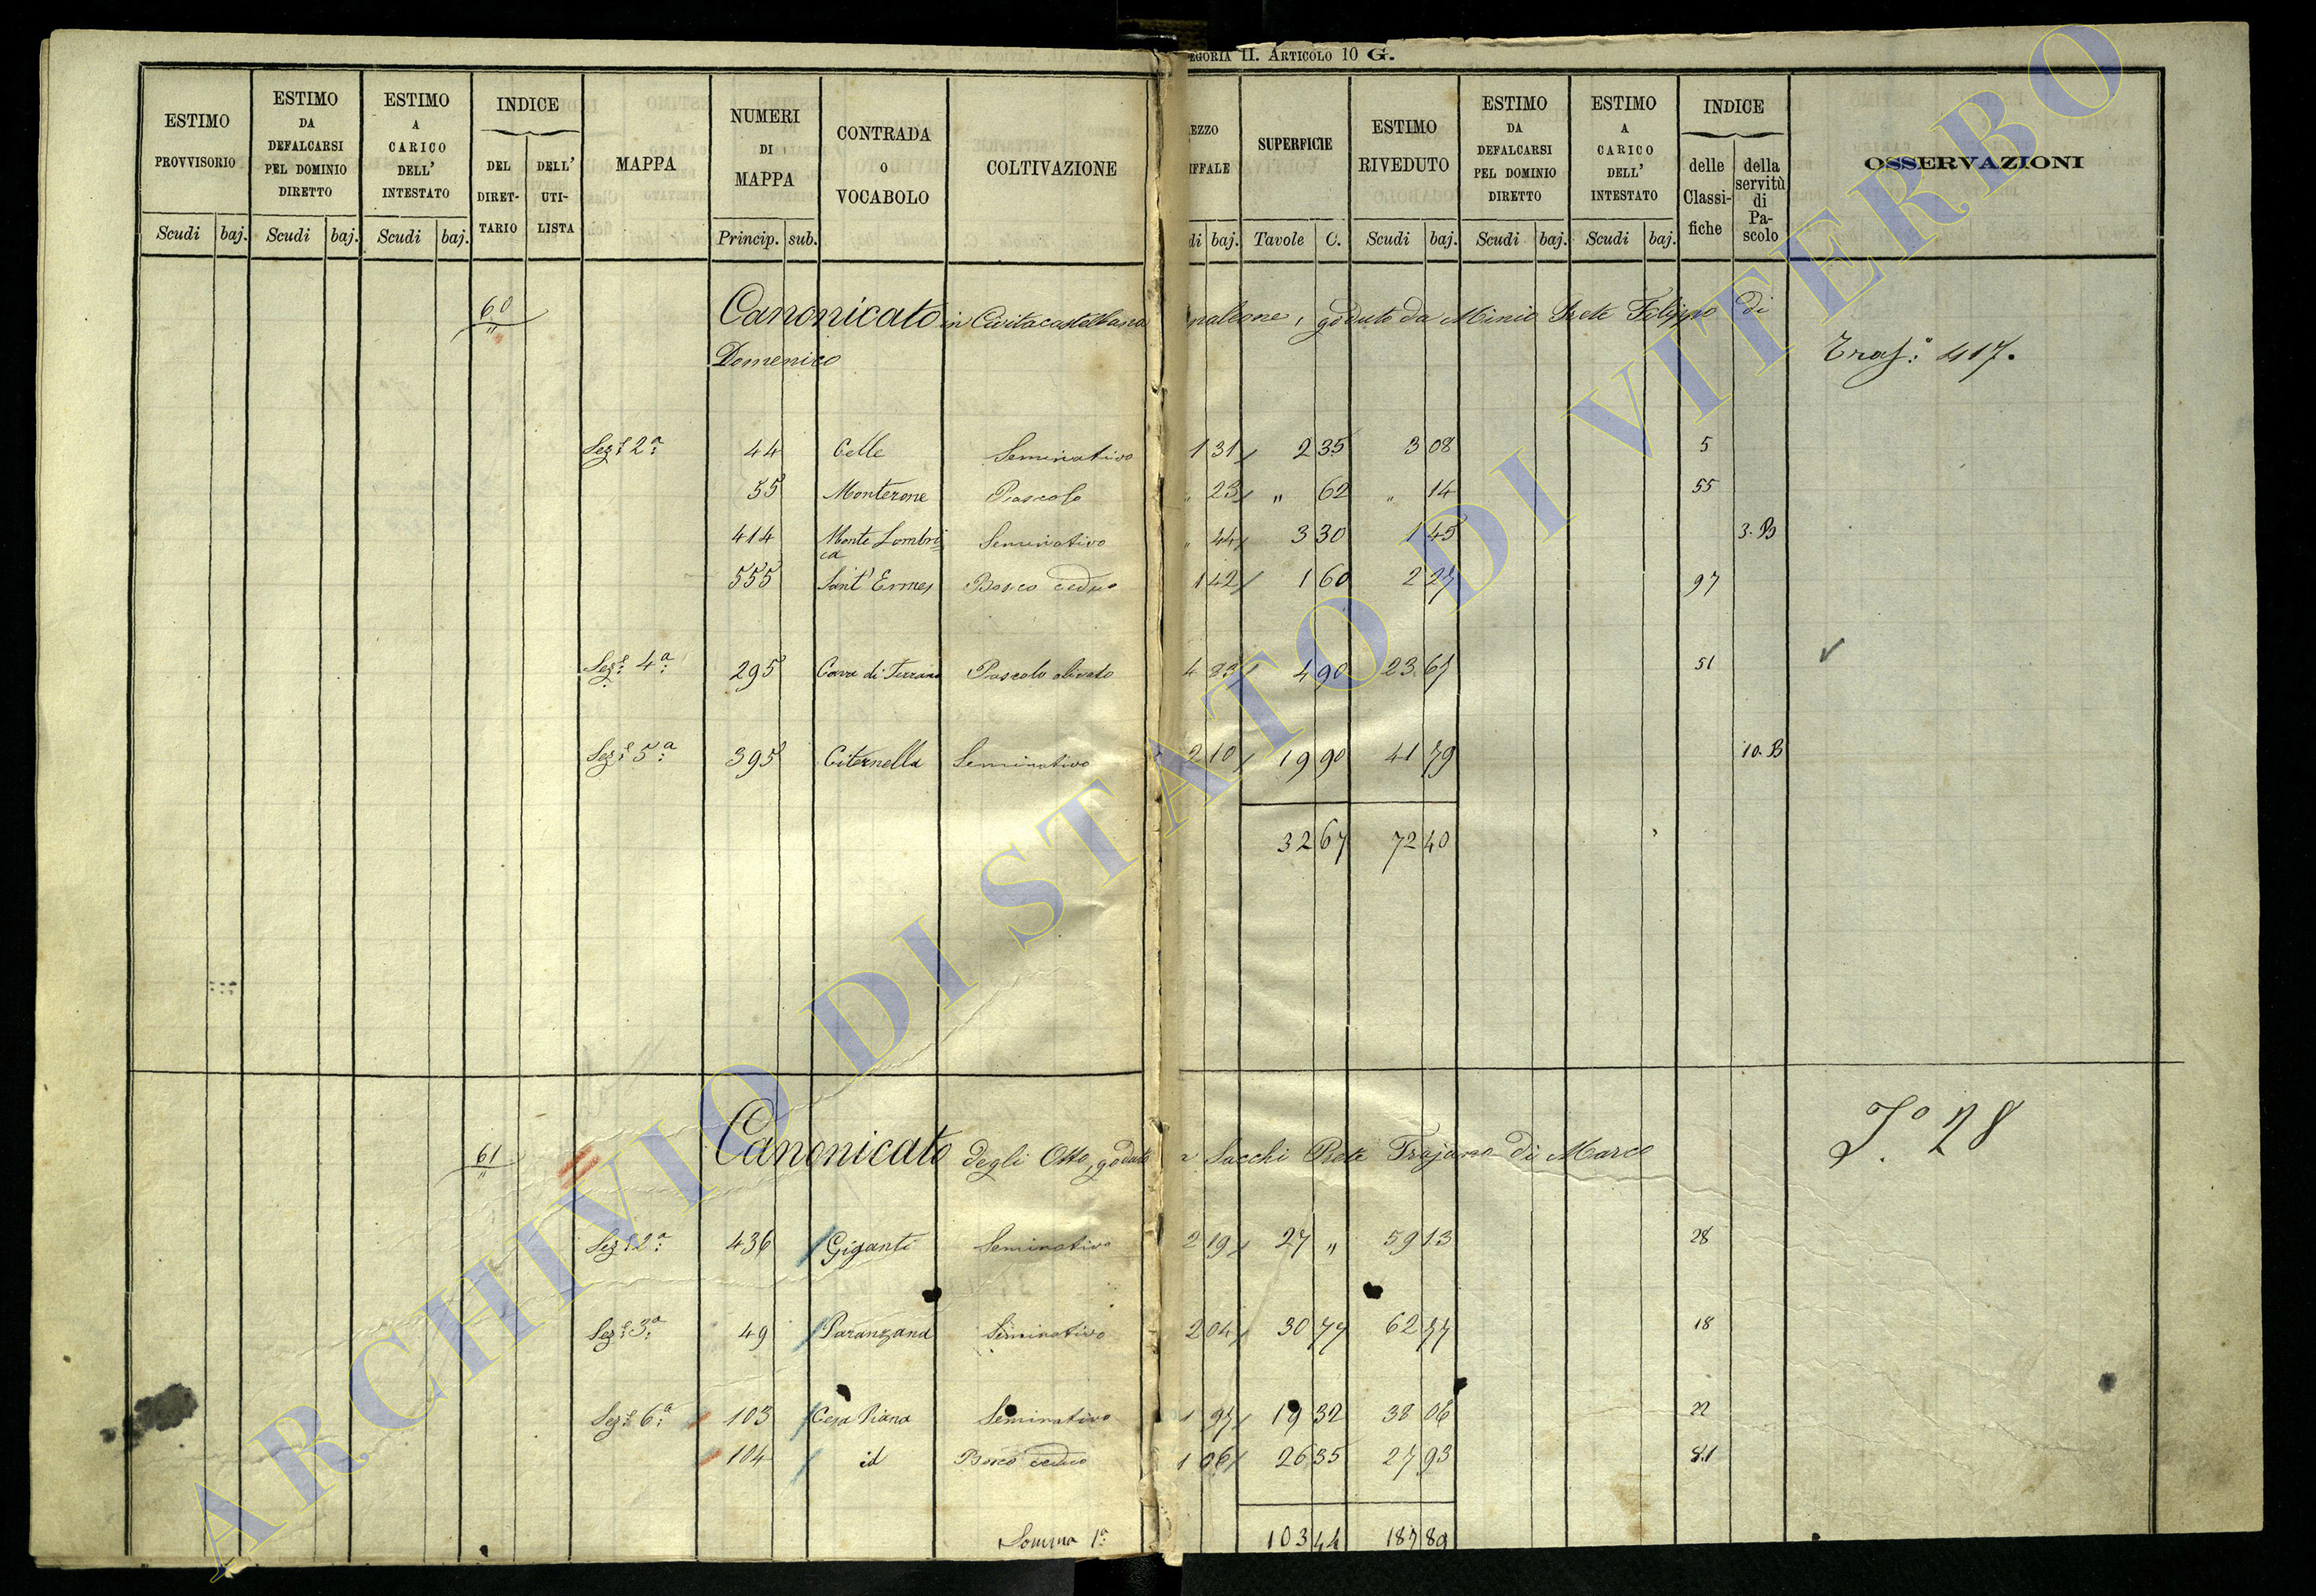 EGORIA II. ARTICOLO 10 G.
ESTIMO PROVVISORIO Scudi baj.
ESTIMO DA DEFALCARSI PEL DOMINIO DIRETTO Scudi baj.
ESTIMO A CARICO DELL' INTESTATO Scudi baj.
INDICE DEL DIRETTARIO DELL' UTILISTA
MAPPA
NUMERI DI MAPPA Princip. sub.
CONTRADA O VOCABOLO
COLTIVAZIONE
EZZO IFFALE di baj.
SUPERFICIE Tavole C.
ESTIMO RIVEDUTO Scudi baj.
ESTIMO DA DEFALCARSI PEL DOMINIO DIRETTO Scudi baj.
ESTIMO A CARICO DELL' INTESTATO Scudi baj.
INDICE delle Classifiche della servitù di Pascolo
OSSERVAZIONI
60 Canonicato in Civitacastellana goduto da Minio Prete Filippo di
Domenico
Trasf: 417.
Sez: 2a 44 Celle Seminativo 1 31 2 35 3 08 5
55 Monterone Pascolo " 23 " 62 " 14 55
414 Monte Lombrica Seminativo " 44 3 30 1 45 3. B
555 Sant' Ermes Bosco ceduo 1 42 1 60 2 27 97
Sez: 4a 295 Cava di Pascolo olivato 4 83 4 90 23 67 51
Sez: 5a 395 Citernella Seminativo 2 10 19 90 41 79 10. B
32 67 72 40
61 Canonicato degli Otto, goduto Sacchi Prete Trajano di Marco
To 28
Sez: 2a 436 Giganti Seminativo 2 19 27 " 59 13 28
Sez: 3a 49 Paranzana Seminativo 2 04 30 77 62 77 18
Sez: 6a 103 Cesa Piana Seminativo 1 97 19 32 38 06 22
104 id Bosco ceduo 1 06 26 35 27 93 81
Somma 1a 103 44 187 89
ARCHIVIO DI STATO DI VITERBO